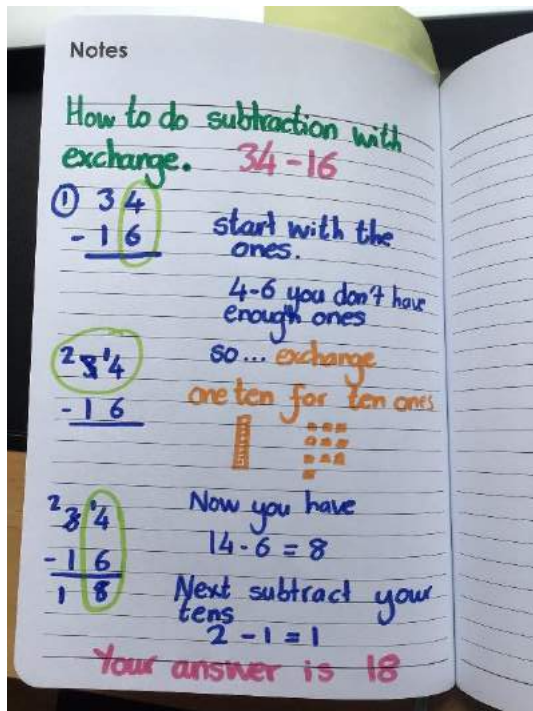 Notes
How to do subtraction with
exchange. 34 - 16
① 3 4
- 1 6
start with the
ones.
4-6 you don't have
enough ones
so... exchange
one ten for ten ones
2 3 14
- 1 6
Now you have
14 - 6 = 8
2 3 14
- 1 6
1 8
Next subtract your
tens
2 - 1 = 1
Your answer is 18